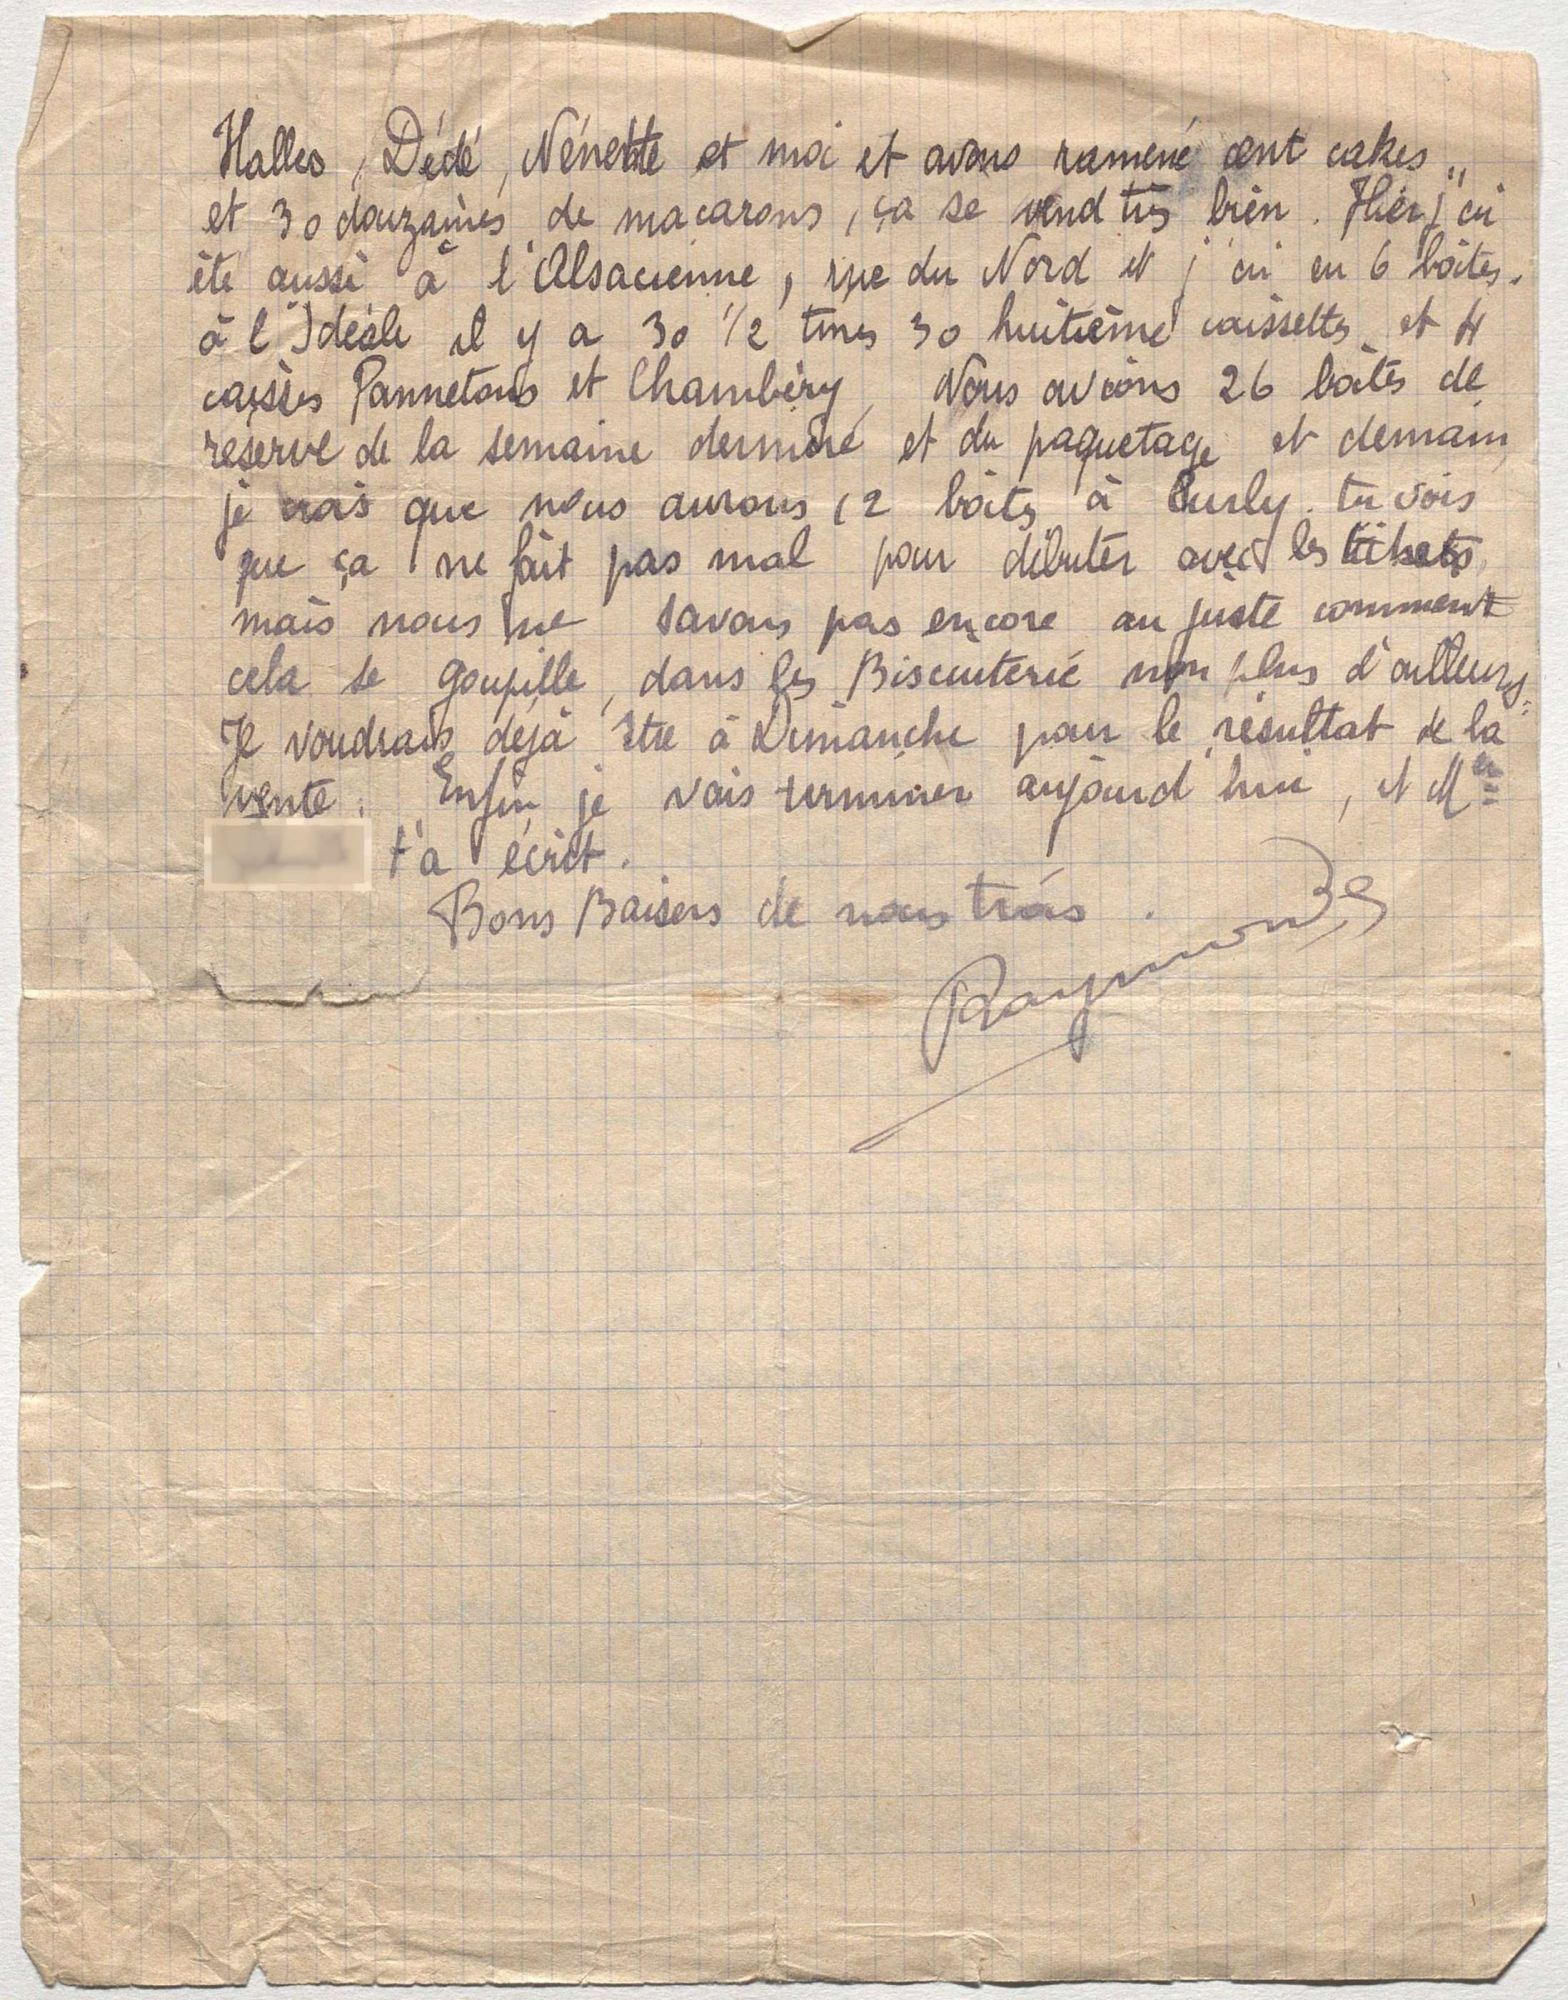 Halles, Dédé, Nénette et moi et avons ramené cent cakes „
et 30 douzaines de macarons, ça se vend très bien. Hier j'ai
été aussi à l'Alsacienne, rue du Nord et j'ai eu 6 boîtes.
à l'Idéale il y a 30 1/2 tines 30 huitième caissettes et 4
caisses Pannetons et Chambéry, Nous avions 26 boîtes de
réserve de la semaine dernière et du paquetage et demain
je crois que nous aurons 12 boîtes à Curly. tu vois
que ça ne fait pas mal pour débuter avec les tickets,
mais nous ne savons pas encore au juste comment
cela se goupille, dans les Biscuiterie non plus d'ailleurs
Je voudrais déjà être à Dimanche pour le résultat de la
vente. Enfin je vais terminer aujourd'hui, et
t'a écrit.
Bons Baisers de nous trois.
Raymonde